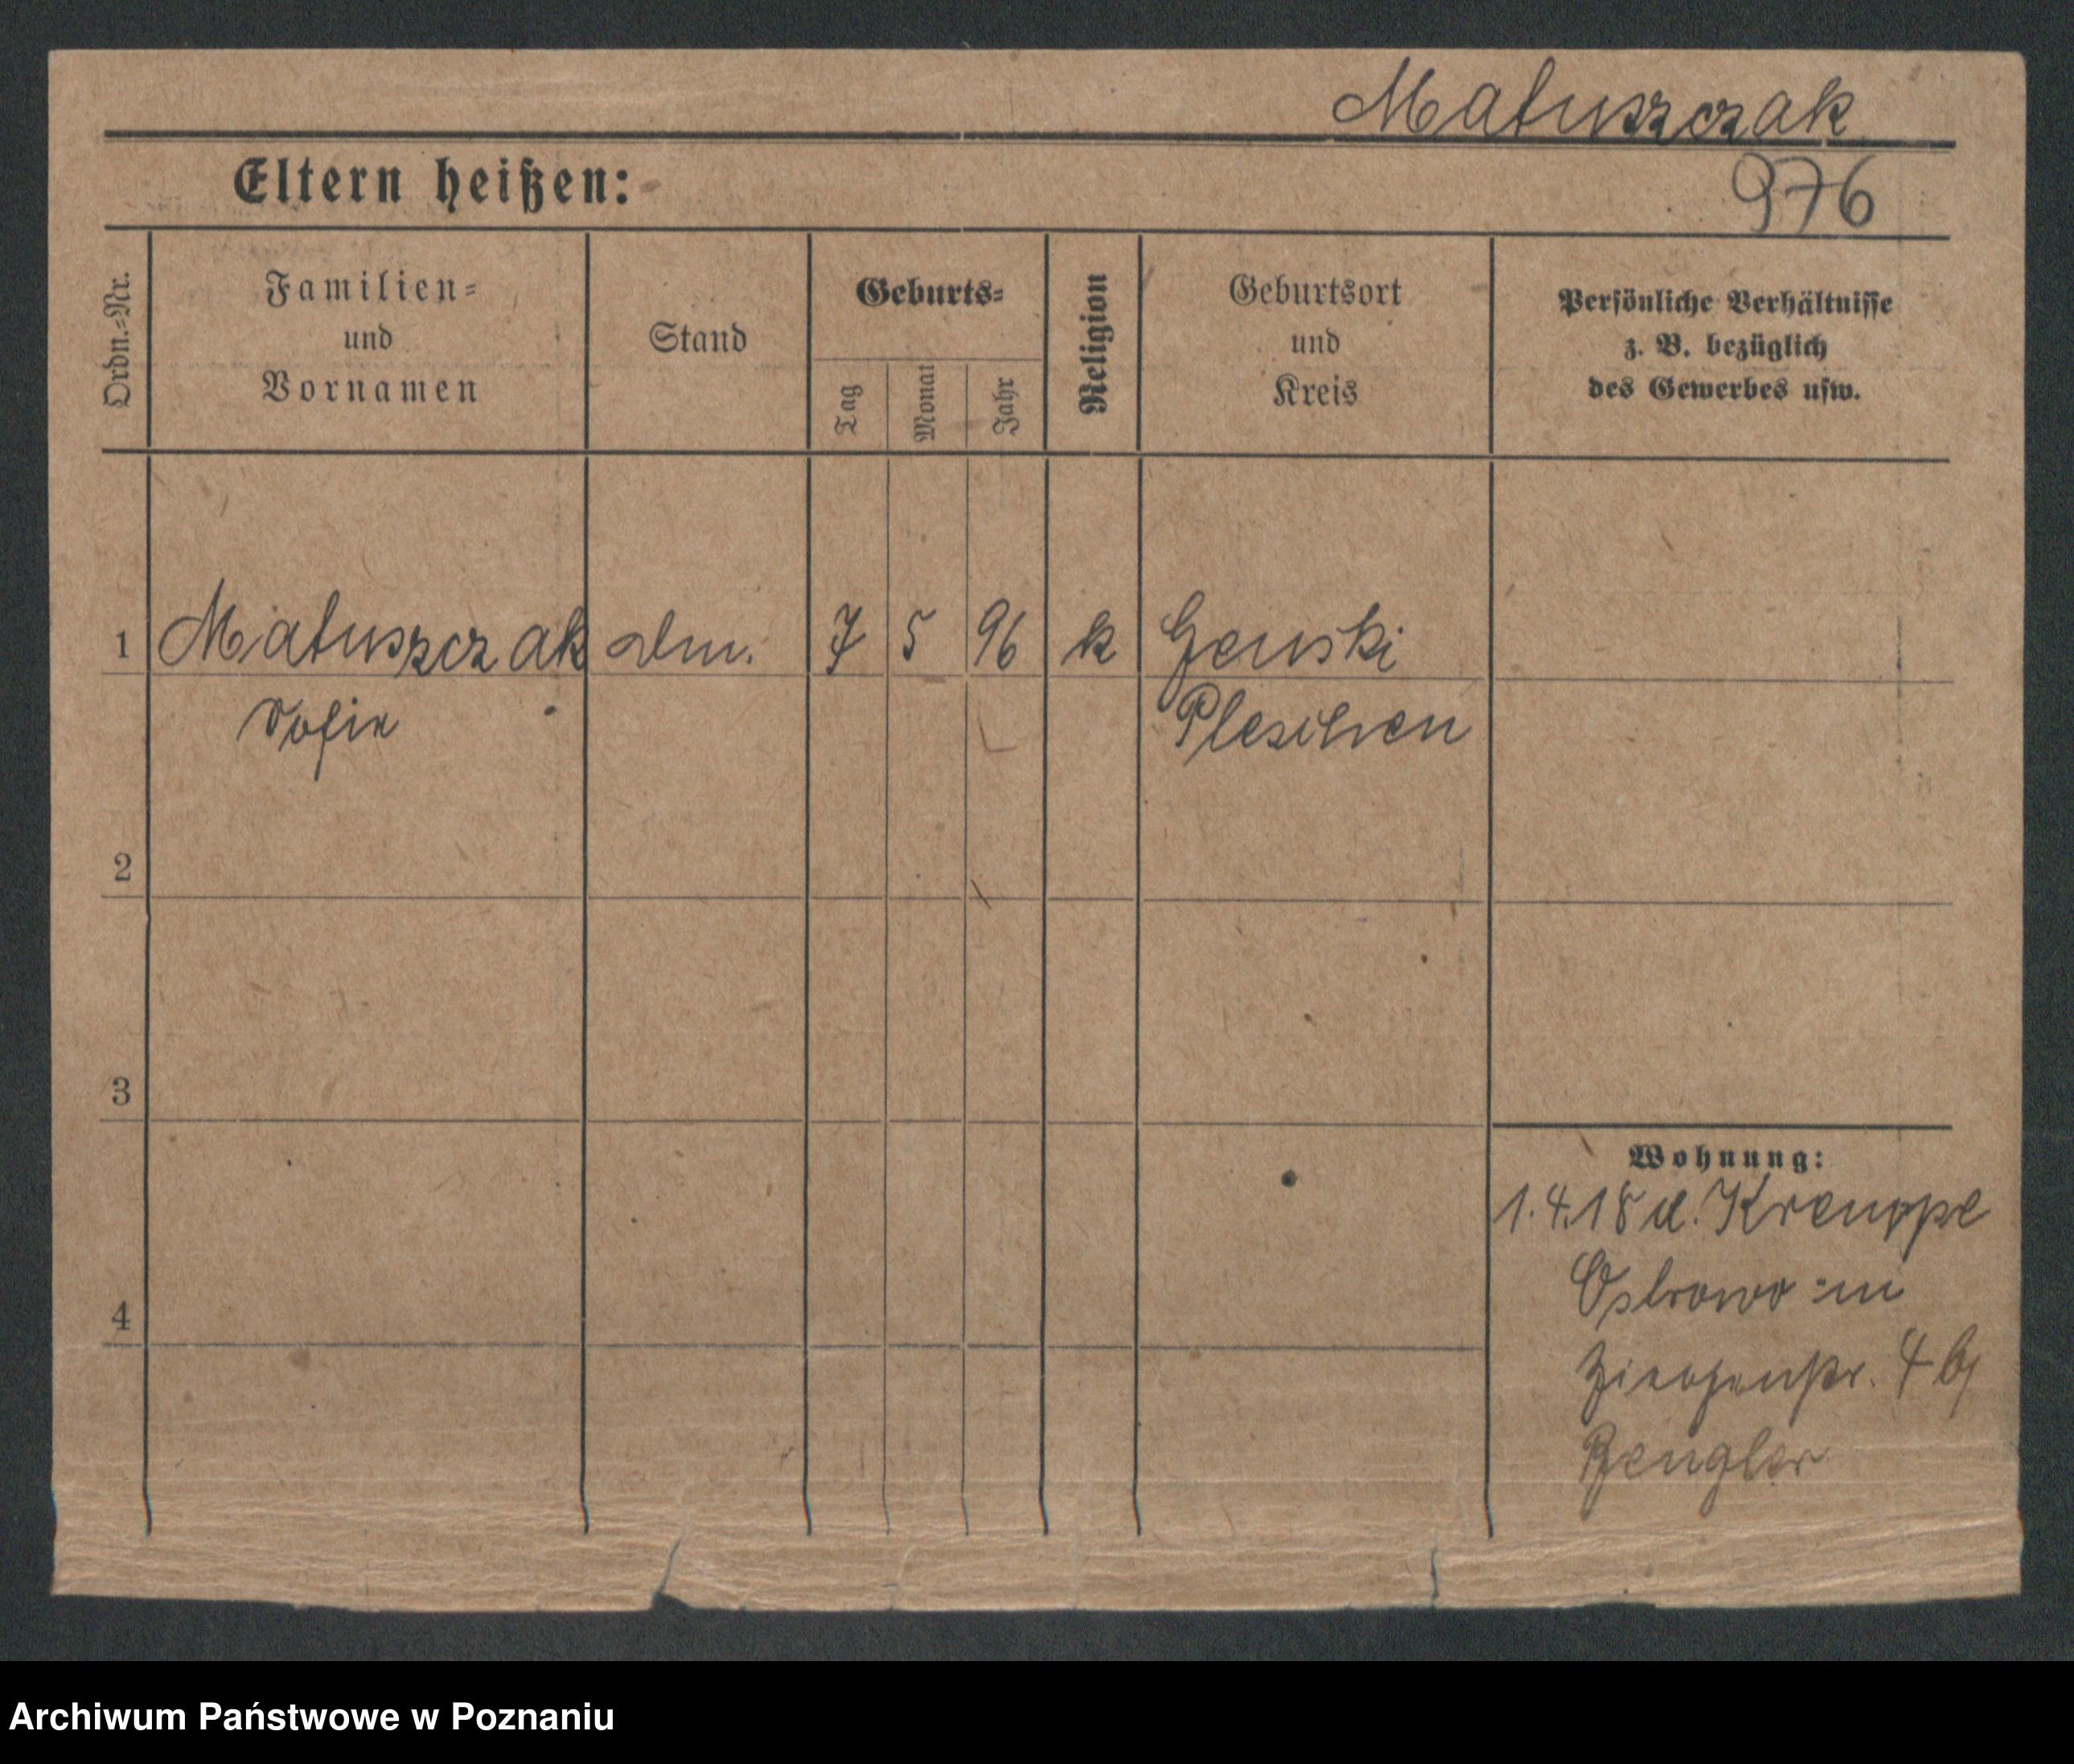 Matuszczak
Eltern heißen:
976
Ordn.=Nr.
Familien=
und
Vornamen
Stand
Geburts=
Tag
Monat
Jahr
Religion
Geburtsort
und
Kreis
Persönliche Verhältnisse
z. B. bezüglich
des Gewerbes usw.
1 Matuszczak 7 5 96 k
Sofie Pleschen
2
3
4
Wohnung:
1.4.18
Ostrowo in
4
Archiwum Państwowe w Poznaniu